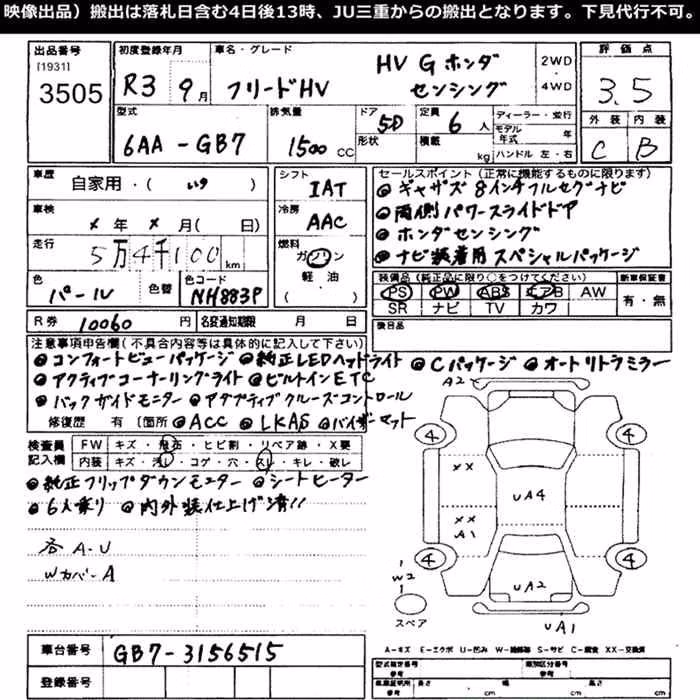 映像出品）搬出は落札日含む4日後13時、JU三重からの搬出となります。下見代行不可。
出品番号
[1931]
3505
初度登録年月
R3 9月
車名・グレード
フリードHV
HV G ホンダ
センシング
2WD
・
4WD
評価点
3.5
外装 内装
C B
型式
6AA-GB7
排気量
1500 CC
ドア
5D
形状
定員
6人
積載
kg
ディーラー・並行
モデル年式 年
ハンドル 左・右
車歴
自家用・( いち )
シフト
IAT
車検
× 年 × 月( 日)
冷房
AAC
走行
5万4千100 km
燃料
ガソリン
軽油
( )
色
パール
色替
色コード
NH883P
R券 10060 円
名変通知期限 月 日
セールスポイント（正常に機能するものに限ります）
◎ギャザズ8インチフルセグナビ
◎両側パワースライドドア
◎ホンダセンシング
◎ナビ装着用スペシャルパッケージ
装備品（純正品に限り○をつけてください）
PS PW ABS エアB AW
SR ナビ TV カワ
新車保証書
有・無
後日品
注意事項申告欄(不具合内容等は具体的に記入して下さい)
◎コンフォートビューパッケージ ◎純正LEDヘッドライト ◎Cパッケージ ◎オートリトラミラー
◎アクティブコーナーリングライト ◎ビルトインETC
◎バックガイドモニター ◎アダプティブクルーズコントロール
修復歴 有 〔箇所 ◎ACC ◎LKAS ◎バイザーマット
検査員記入欄
FW キズ・飛石・ヒビ割・リペア跡・X要
内装 キズ・汚レ・コゲ・穴・スレ・キレ・破レ
◎純正フリップダウンモニター ◎シートヒーター
◎6人乗り ◎内外装仕上げ済!!
各A-U
WカバーA
A2
4
4
××
UA4
××
A1
4
4
W2
スペア
UA2
UA1
車台番号 GB7-3156515
登録番号
A-キズ E-エクボ U-凹み W-補修跡 S-サビ C-腐食 XX-交換済
型式指定番号
参考
類別区分番号
参考
長さ cm
幅 cm
高さ cm